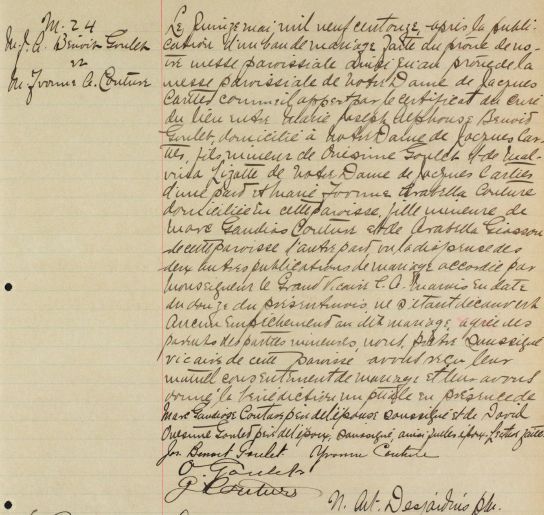 M. 24
M. J. A. Benoit Goulet
et
M. Yvonne A. Couture
Le quinze mai mil neuf cent onze, après la publi-
cation d'un ban de mariage faite au prône de no-
tre messe paroissiale ainsi qu'au prône de la
messe paroissiale de Notre Dame de Jacques
Cartier comme il appert par le certificat du curé
du lieu entre Marie Joseph Alphonse Benoit
Goulet, domicilié à Notre Dame de Jacques Car-
tier, fils mineur de Onésime Goulet & de Mal-
vina Lizotte de Notre Dame de Jacques Cartier
d'une part et Marie Yvonne Arabella Couture
domiciliée en cette paroisse, fille mineure de
Marc Gaudios Couture et de Arabella Giasson
de cette paroisse d'autre part vu la dispense des
deux autres publications de mariage accordée par
Monseigneur le Grand Vicaire C. A. Marois en date
du douze du présent mois, ne s'étant découvert
aucun empêchement au dit mariage, agrée des
parents des parties mineures, nous, prêtre soussigné
vicaire de cette paroisse, avons reçu leur
mutuel consentement de mariage et leur avons
donné la bénédiction nuptiale en présence de
Marc Gaudiose Couture père de l'épouse soussigné et de David
Onésime Goulet père de l'époux, soussigné, ainsi que les époux. Lecture faite.
Jos. Benoit Goulet Yvonne Couture
O Goulet
G. Couture
N. Art. Desjardins ptr.